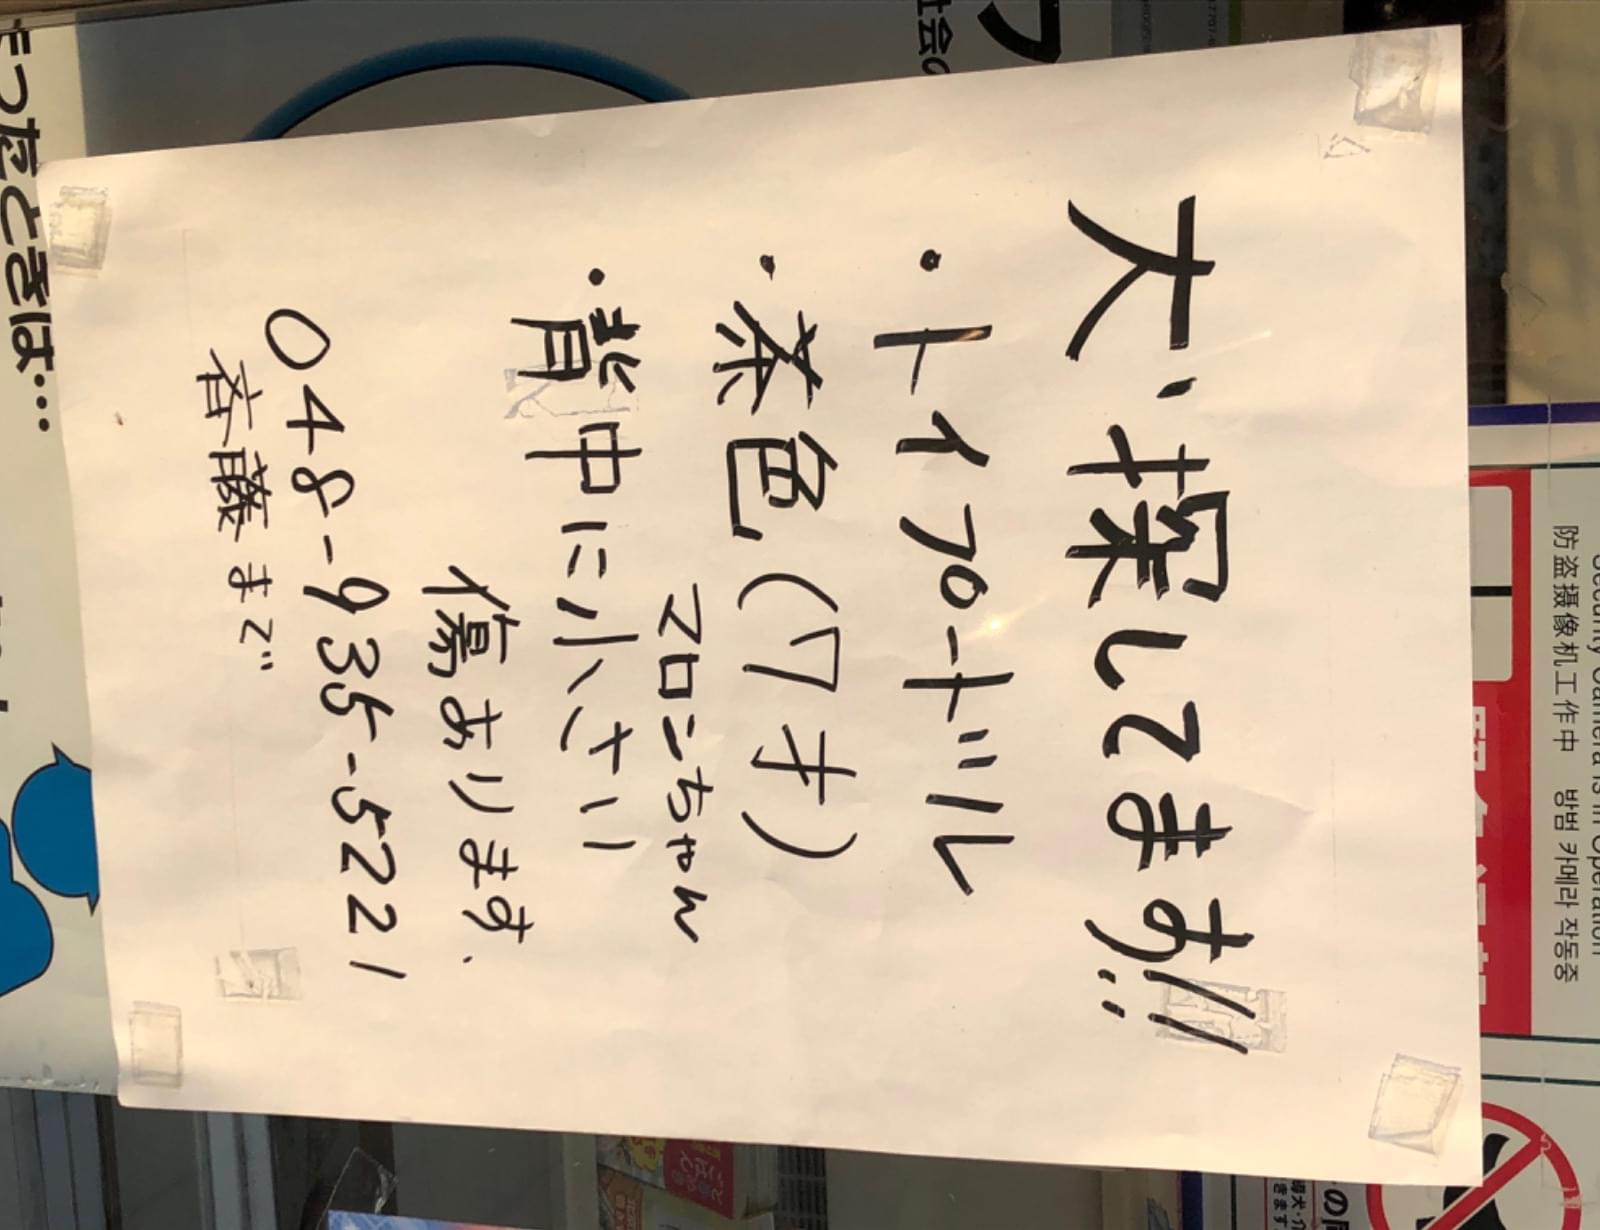 犬探してます!!
・トイプードル
・茶色(7才)
マロンちゃん
・背中に小さい
傷あります.
048-935-5221
斉藤まで
Security Camera is in Operation
防盗摄像机工作中 방범 카메라 작동중
社会の
ったときは…